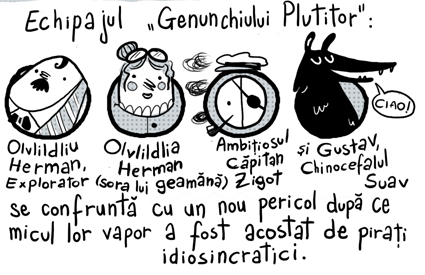 Echipajul „Genunchiului Plutitor":
CIAO!
Olvlildliu
Herman,
Explorator
Olvlildlia
Herman
(sora lui geamănă)
Ambițiosul
Căpitan
Zigot
și Gustav,
Chinocefalul
Suav
se confruntă cu un nou pericol după ce
micul lor vapor a fost acostat de pirați
idiosincratici.